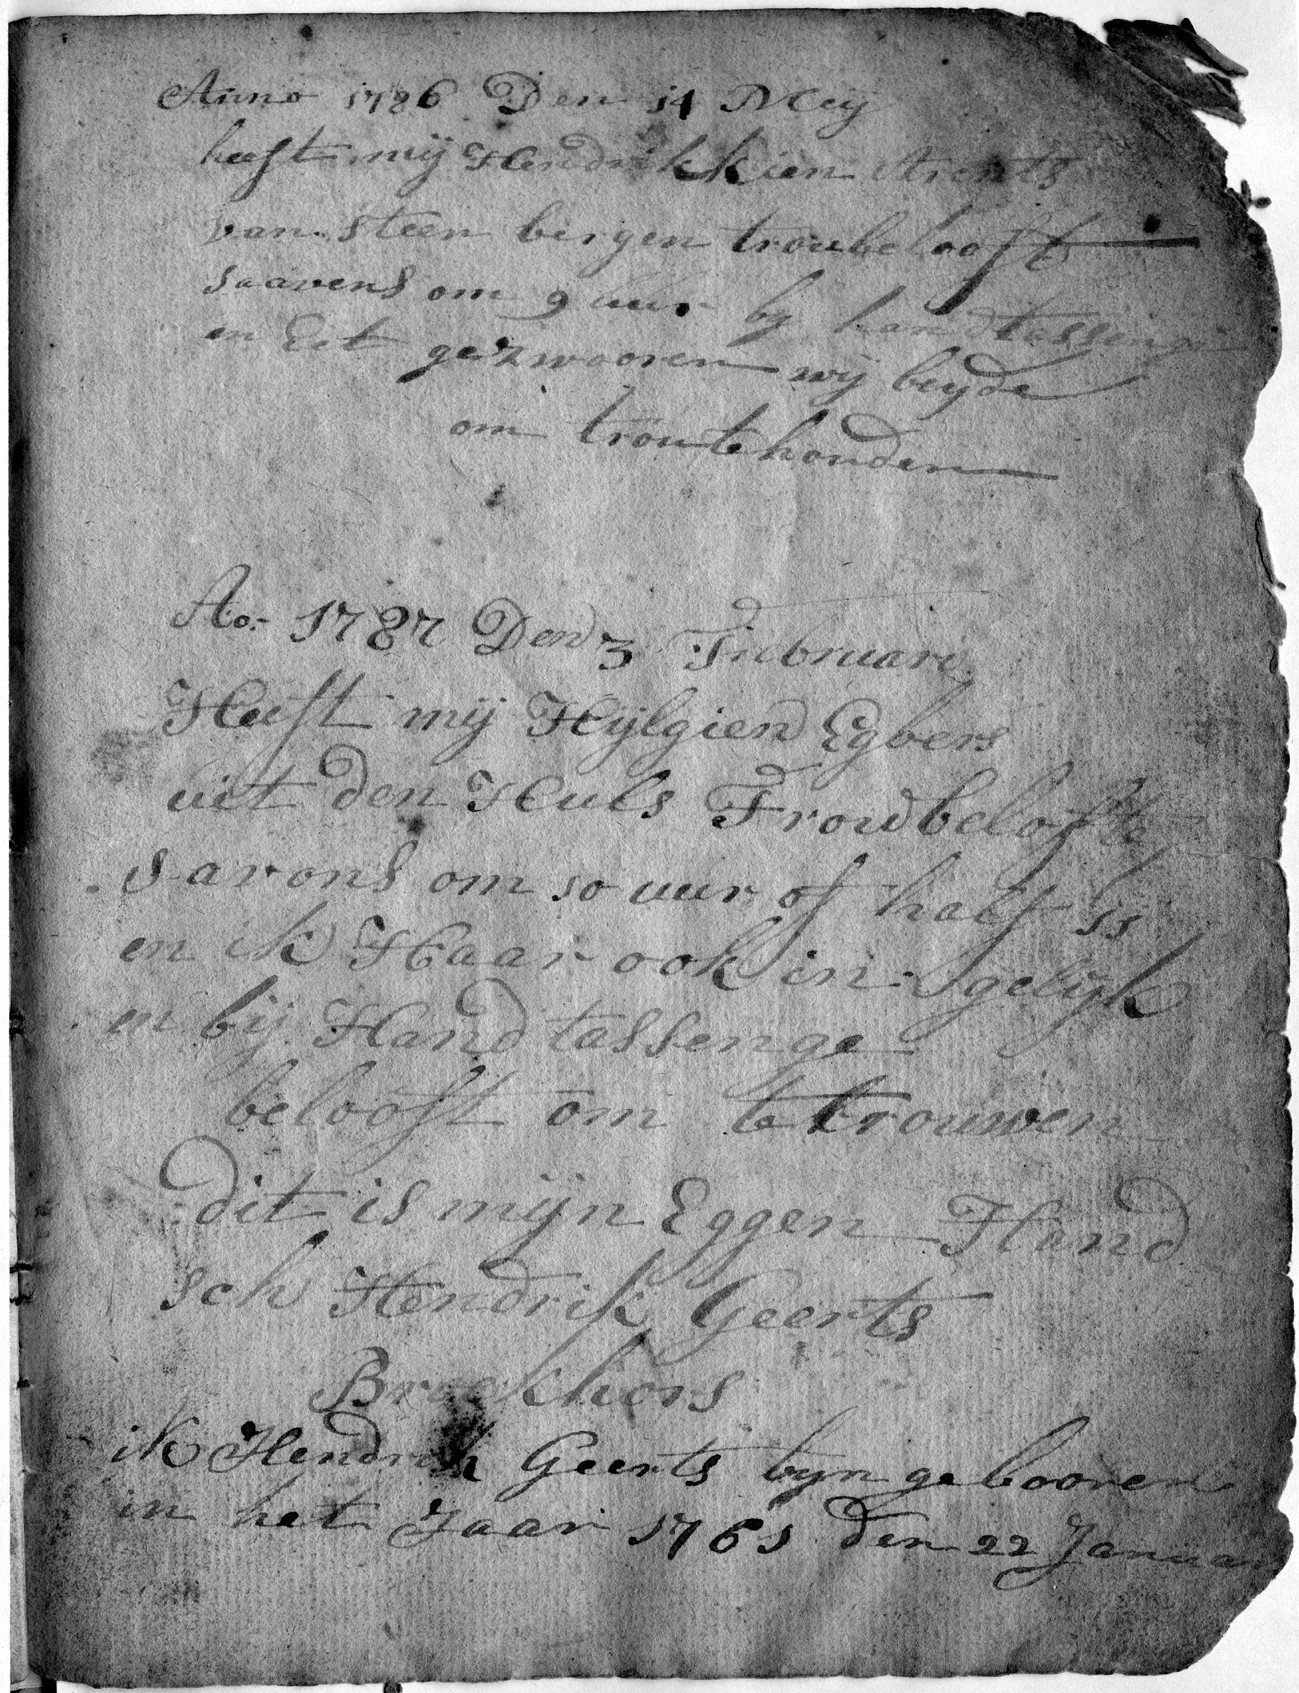 Anno 1786 Den 14 Meij
heeft mij Hendrikkien Arents
van steen bergen troubelooft
saavens om 9 uur bij handtassenge
en Eet gezwooren wij beyde
om trou te houden
Ao: 1787 Den 3 Fiebruari
Heeft mij Hijlgien Egbers
uit den Huls Trouwbelofte
s avons om 10 uur of half 11
en ik Haar ook in sgelijk
en bij Hand tassenge
belooft om te trouwen
dit is mijn Eggen Hand
sch Hendrik Geerts
Broekhors
ik Hendrik Geerts byn gebooren
in het Jaar 1761 den 22 Januar